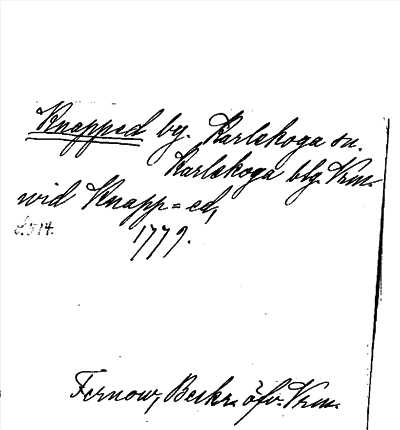 Knapped by. Karlskoga sn.
Karlskoga blg. Vrm.
wid Knapp=ed,
d. 514.
1779.
Fernow, Beskr. öfv. Vrm.